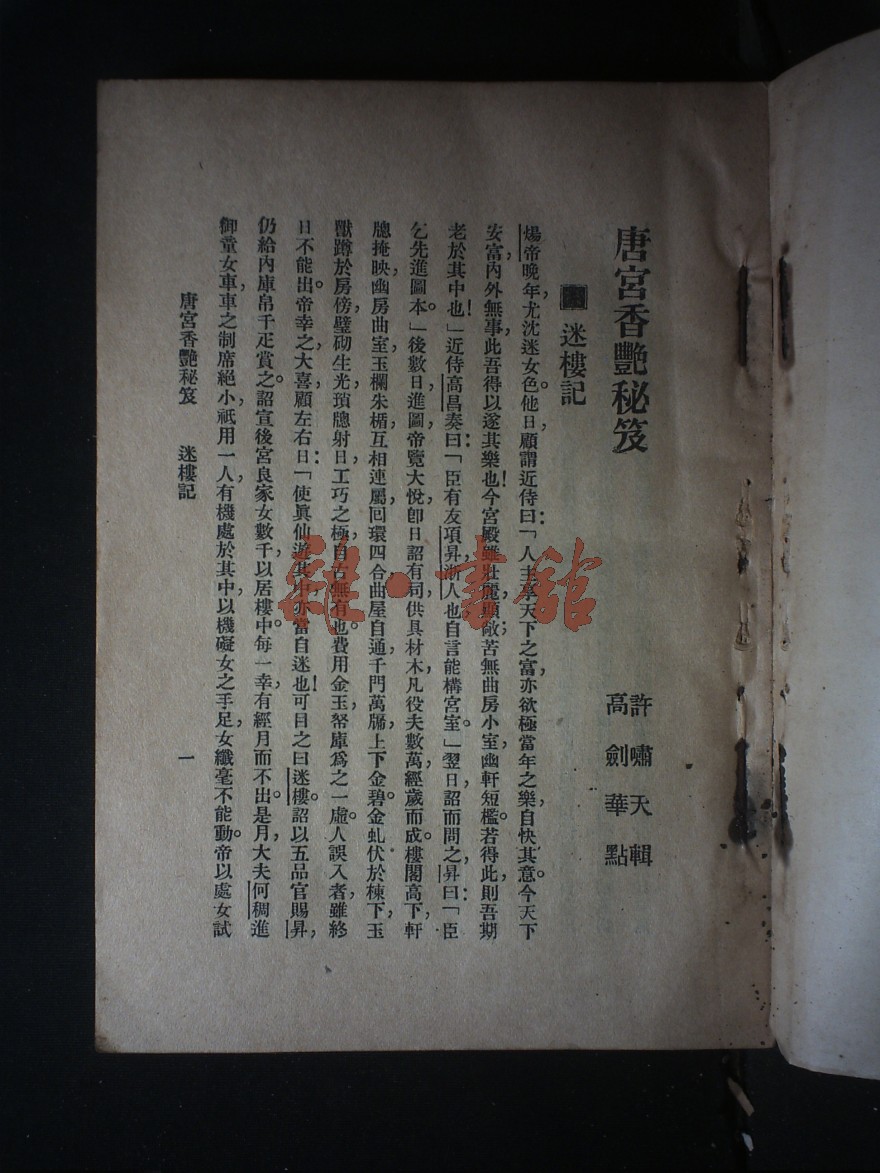 唐宮香艷秘笈
許嘯天輯
高劍華點
迷樓記
煬帝晚年，尤沈迷女色。他日顧謂近侍曰：「人主享天下之富，亦欲極當年之樂，自快其意。今天下
安富，內外無事，此吾得以遂其樂也！今宮殿雖壯麗顯敞，苦無曲房小室，幽軒短檻。若得此，則吾期
老於其中也！」近侍高昌奏曰：「臣有友項昇，浙人也，自言能構宮室。」翌日，詔而問之，昇曰：「臣
乞先進圖本。」後數日，進圖，帝覽大悅，卽日詔有司供具材木，凡役夫數萬，經歲而成。樓閣高下，軒
牕掩映，幽房曲室，玉欄朱楯，互相連屬，回環四合，曲屋自通，千門萬牖，上下金碧。金虬伏於棟下，玉
獸蹲於房傍，璧砌生光，瑣牕射日，工巧之極，自古無有也。費用金玉，帑庫爲之一虛。人誤入者，雖終
日不能出。帝幸之大喜，顧左右曰：「使眞仙遊其中，亦當自迷也！可目之曰迷樓。詔以五品官賜昇，
仍給內庫帛千疋賞之。詔宣後宮良家女數千，以居樓中。每一幸，有經月而不出。是月，大夫何稠進
御童女車，車之制度絕小，祇用一人，有機處於其中，以機礙女之手足，女纖毫不能動。帝以處女試
唐宮香艷秘笈 迷樓記
一
雜·書館